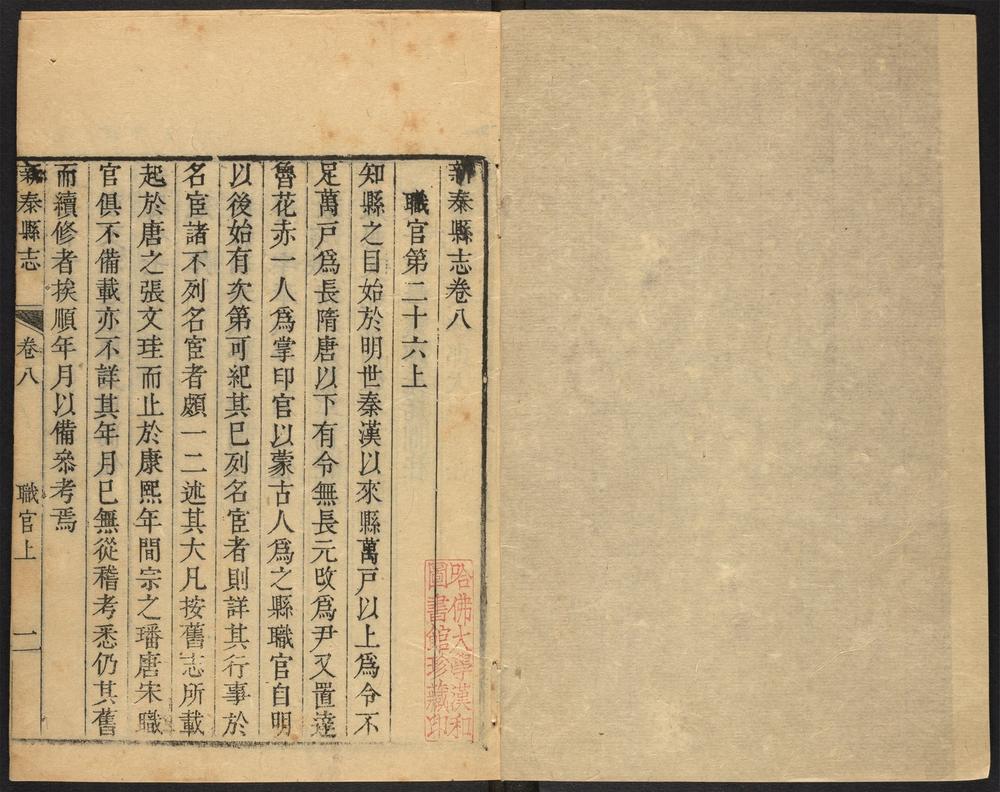 新泰縣志卷八
職官第二十六上
知縣之目始於明世秦漢以來縣萬戸以上爲令不
足萬戸爲長隋唐以下有令無長元改爲尹又置達
魯花赤一人爲掌印官以蒙古人爲之縣職官自明
以後始有次第可紀其已列名宦者則詳其行事於
名宦諸不列名宦者頗一二述其大凡按舊志所載
起於唐之張文珪而止於康熙年間宗之璠唐宋職
官俱不備載亦不詳其年月已無從稽考悉仍其舊
而續修者挨順年月以備叅考焉
新泰縣志
卷八
職官上
一
哈佛大學漢和
圖書館珍藏印